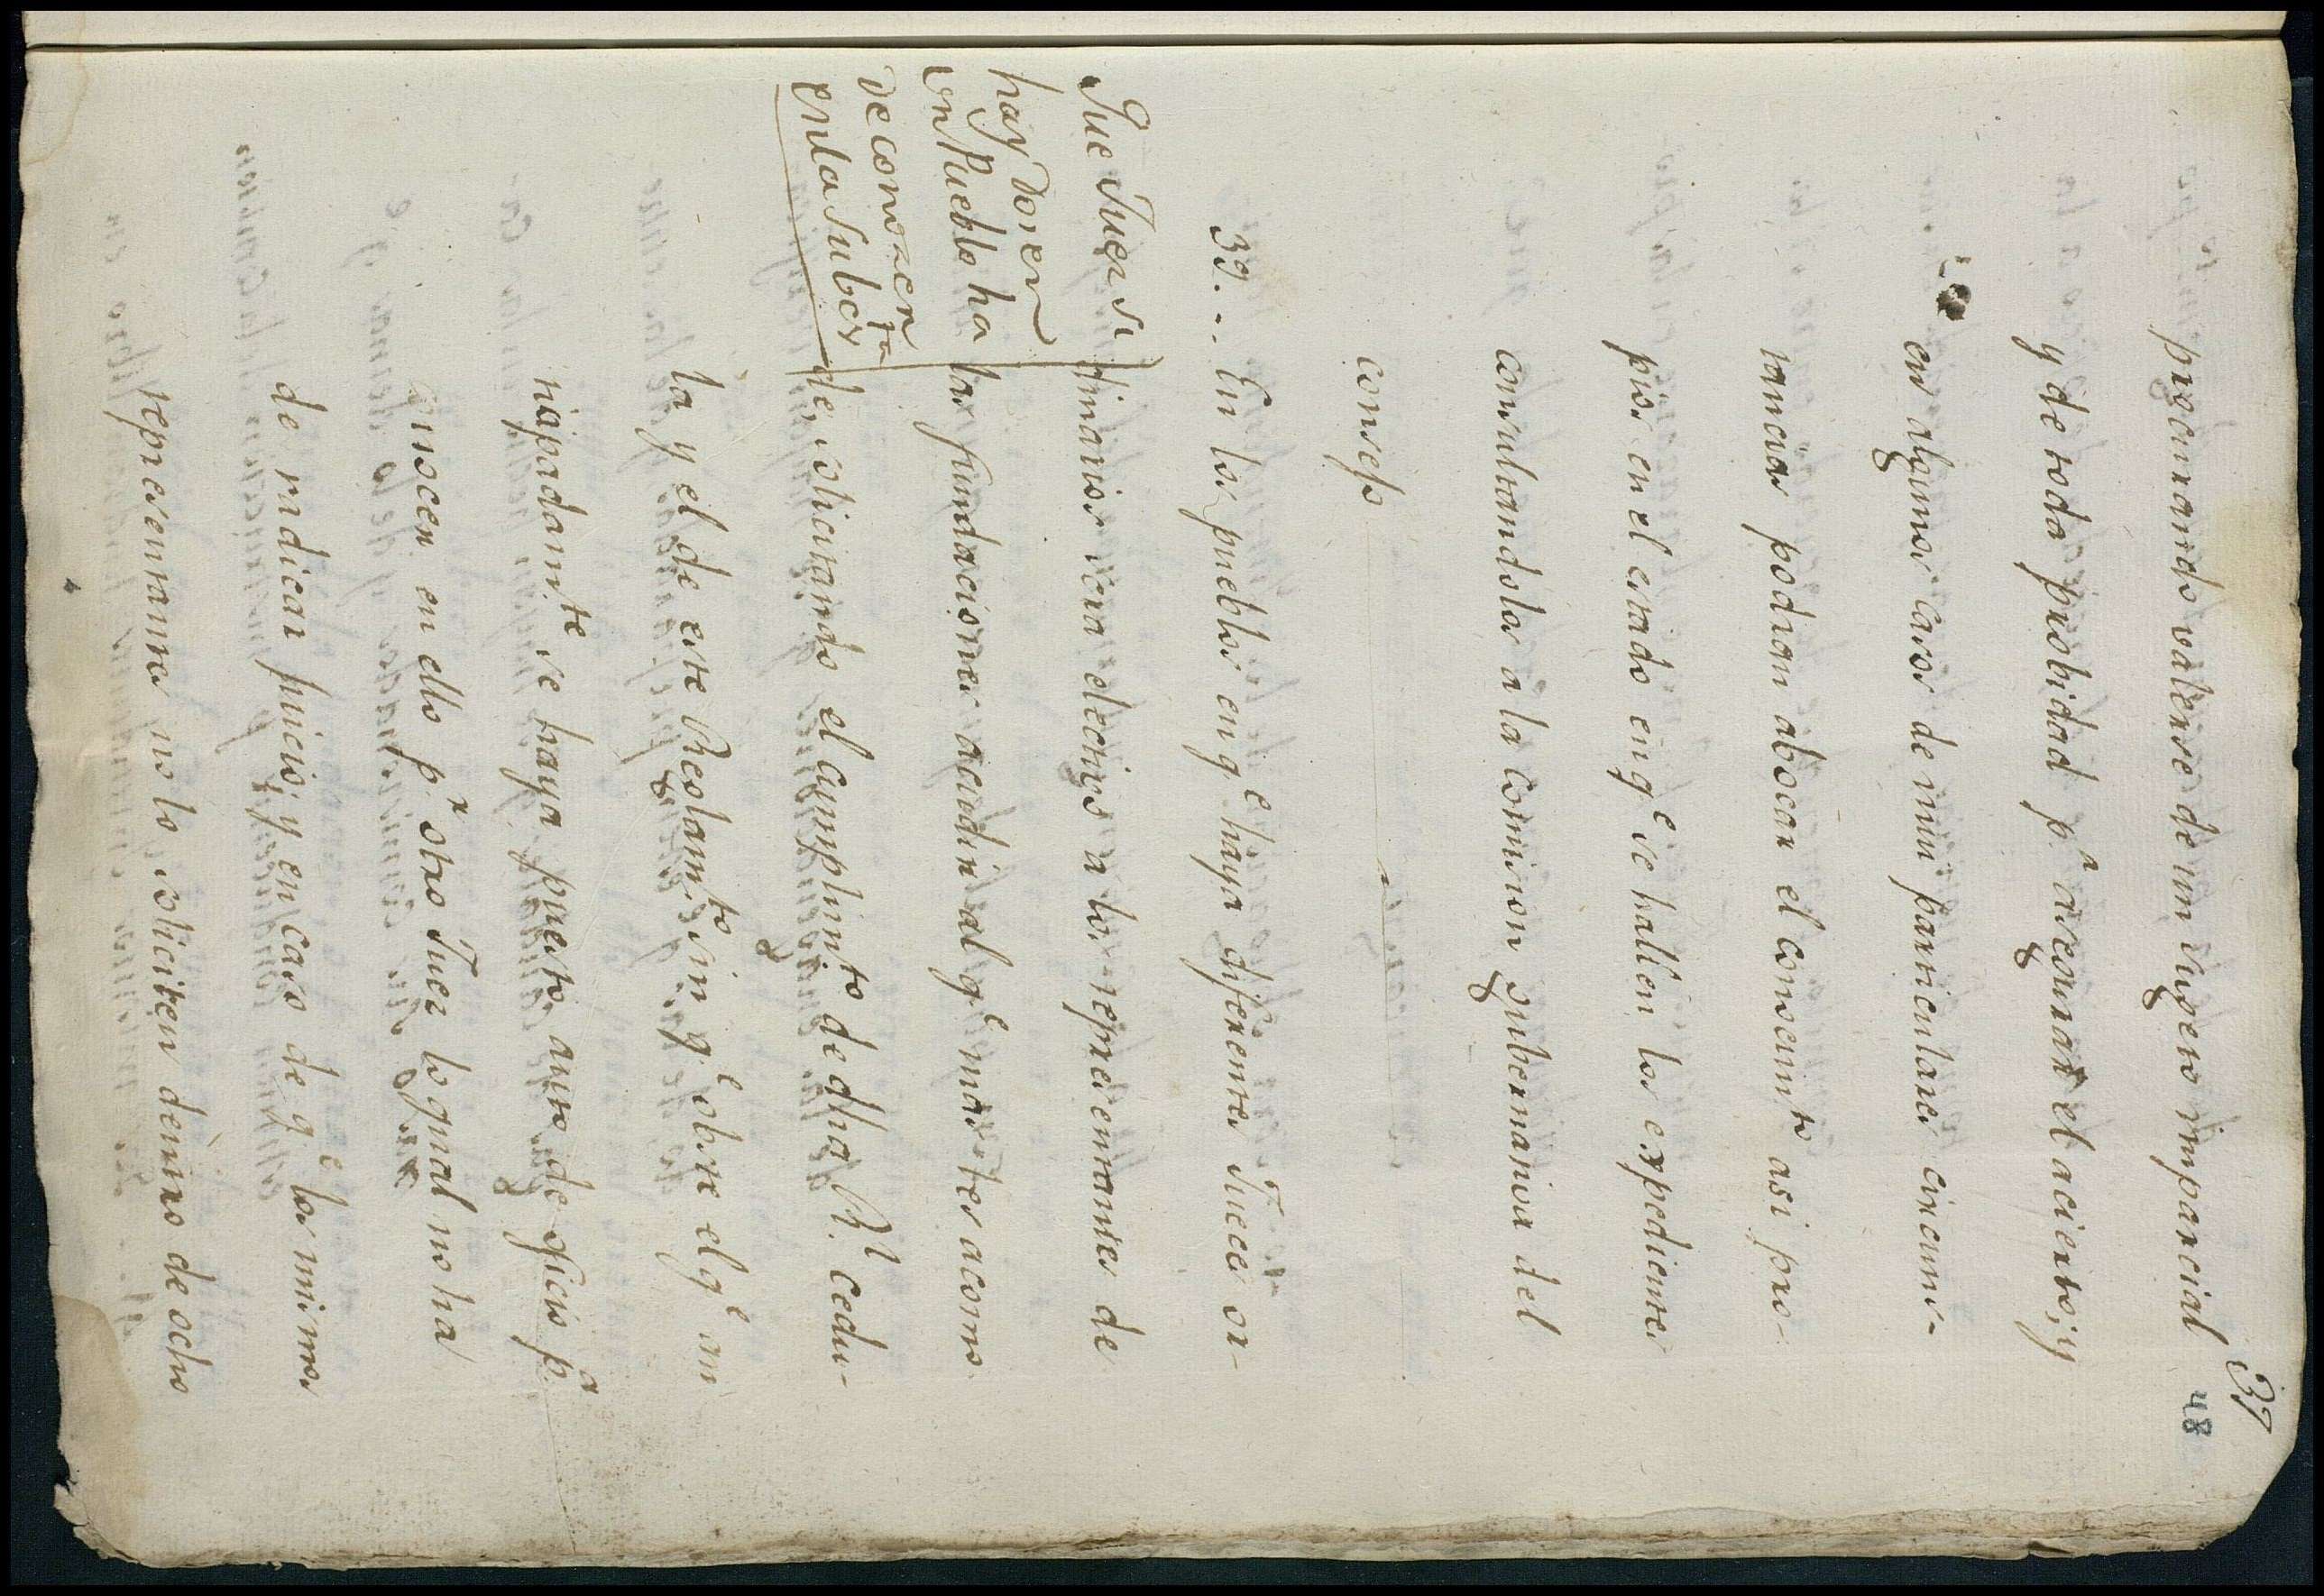 37
48
procurando valerse de un sugeto imparcial
y de toda probidad p.ª asegurar el acierto, y
en algunos casos de mui particulares circuns-
tancias podran abocar el conocim.to asi pro-
pios en el estado en q.e se hallen los expedientes
consultandolos a la comision gubernativa del
consejo
Que Juez si
hay dos en
un Pueblo ha
de conocer
en la Subas.ta
39.. En los pueblos en q.e haya diferentes Jueces or-
dinarios sera electivo a los representantes de
las fundaciones acudir al q.e mas les acomo
de, solicitando el cumplim.to de dha R.l cedu-
la y el de este Reglam.to sin q.e obste el q.e an
ticipadam.te se haya puesto auto de oficio p.ª
conocer en ello p.r otro Juez lo qual no ha
de radicar juicio, y en caso de q.e los mismos
representantes no lo soliciten dentro de ocho